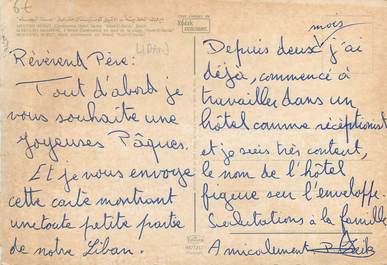 6€
LIBAN
Kodak
Révérend Père:
Tout d'abord je
vous souhaite une
joyeuses Pâques.
Et je vous envoye
cette carte montrant
une toute petite partie
de notre Liban.
mois
Depuis deux j'ai
déja, commencé à
travailler dans un
hôtel comme réceptionist
et je suis très content,
le nom de l'hôtel
figure sur l'enveloppe.
Salutations à la famille
Amicalement